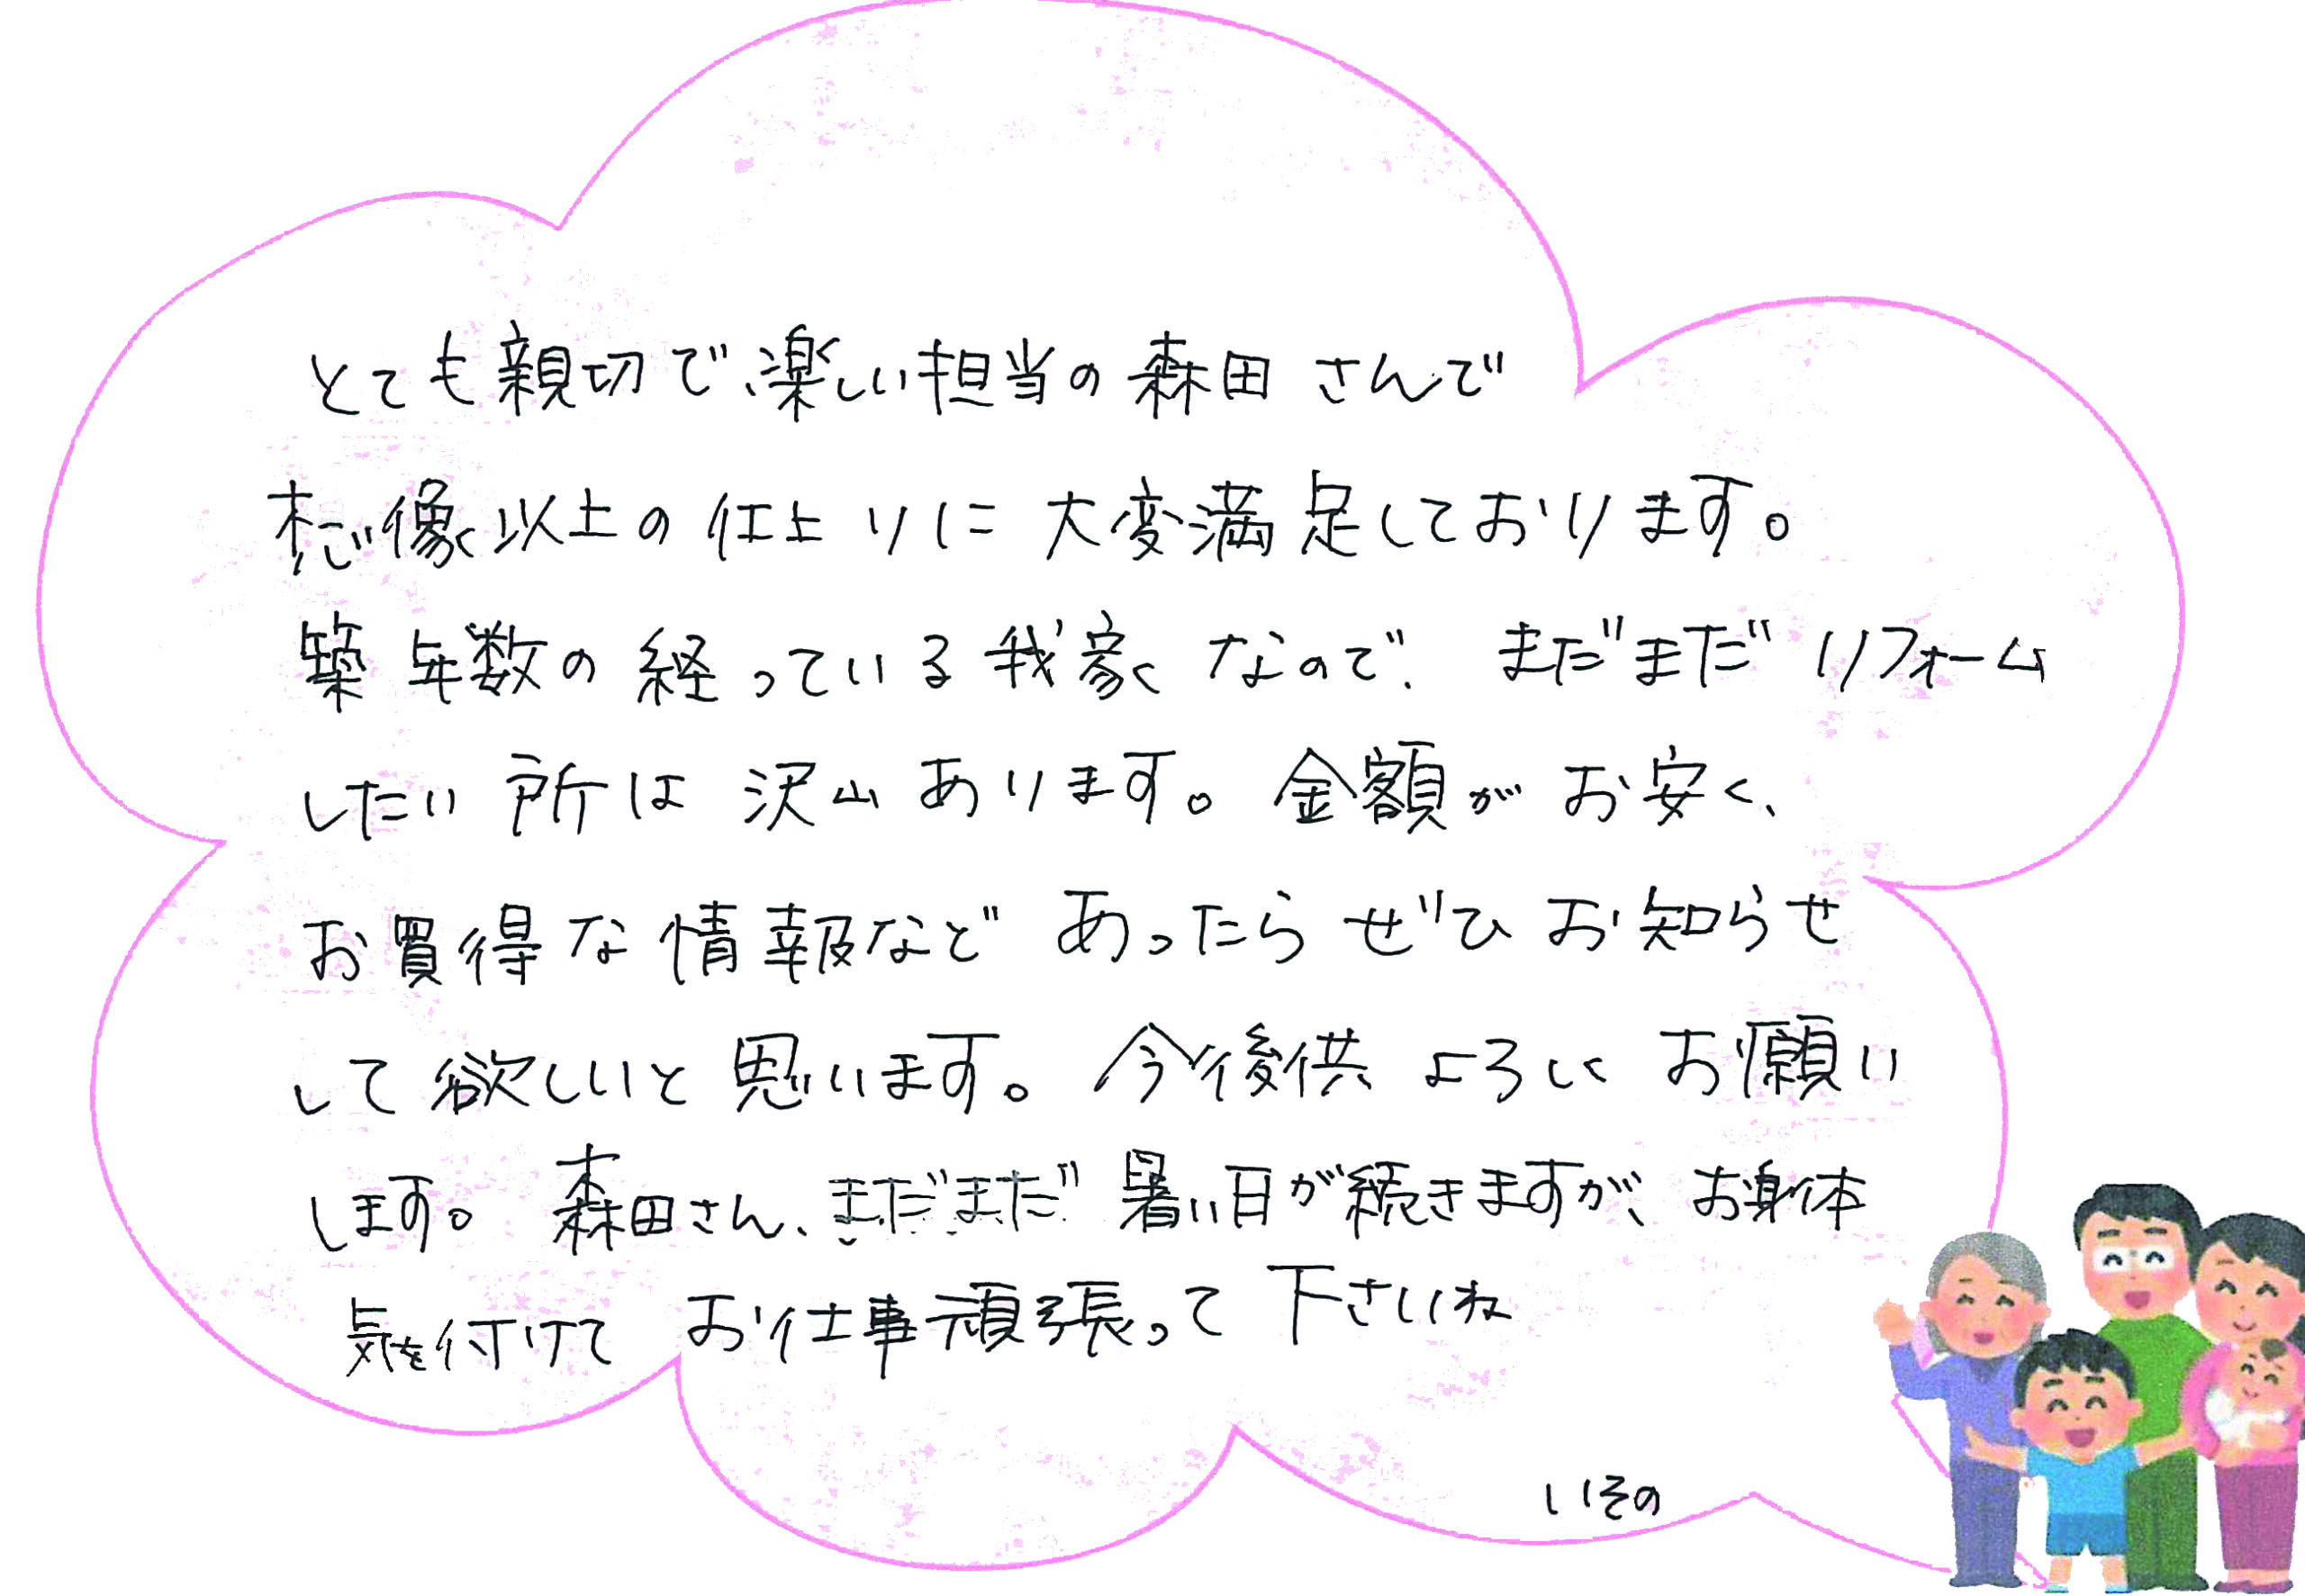 とても親切で、楽しい担当の森田さんで
想像以上の仕上りに大変満足しております。
築年数の経っている我家なので、まだまだリフォーム
したい所は沢山あります。金額がお安く、
お買得な情報などあったらぜひお知らせ
して欲しいと思います。今後供よろしくお願い
します。森田さん、まだまだ暑い日が続きますが、お身体
気を付けてお仕事頑張って下さいね
いその